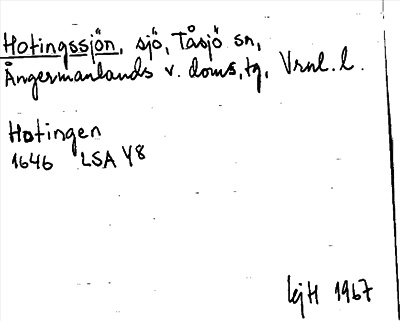 Hotingssjön, sjö, Tåsjö sn,
Ångermanlands v. doms. tg, Vrnl. l.
Hotingen
1646 LSA Y8
1967